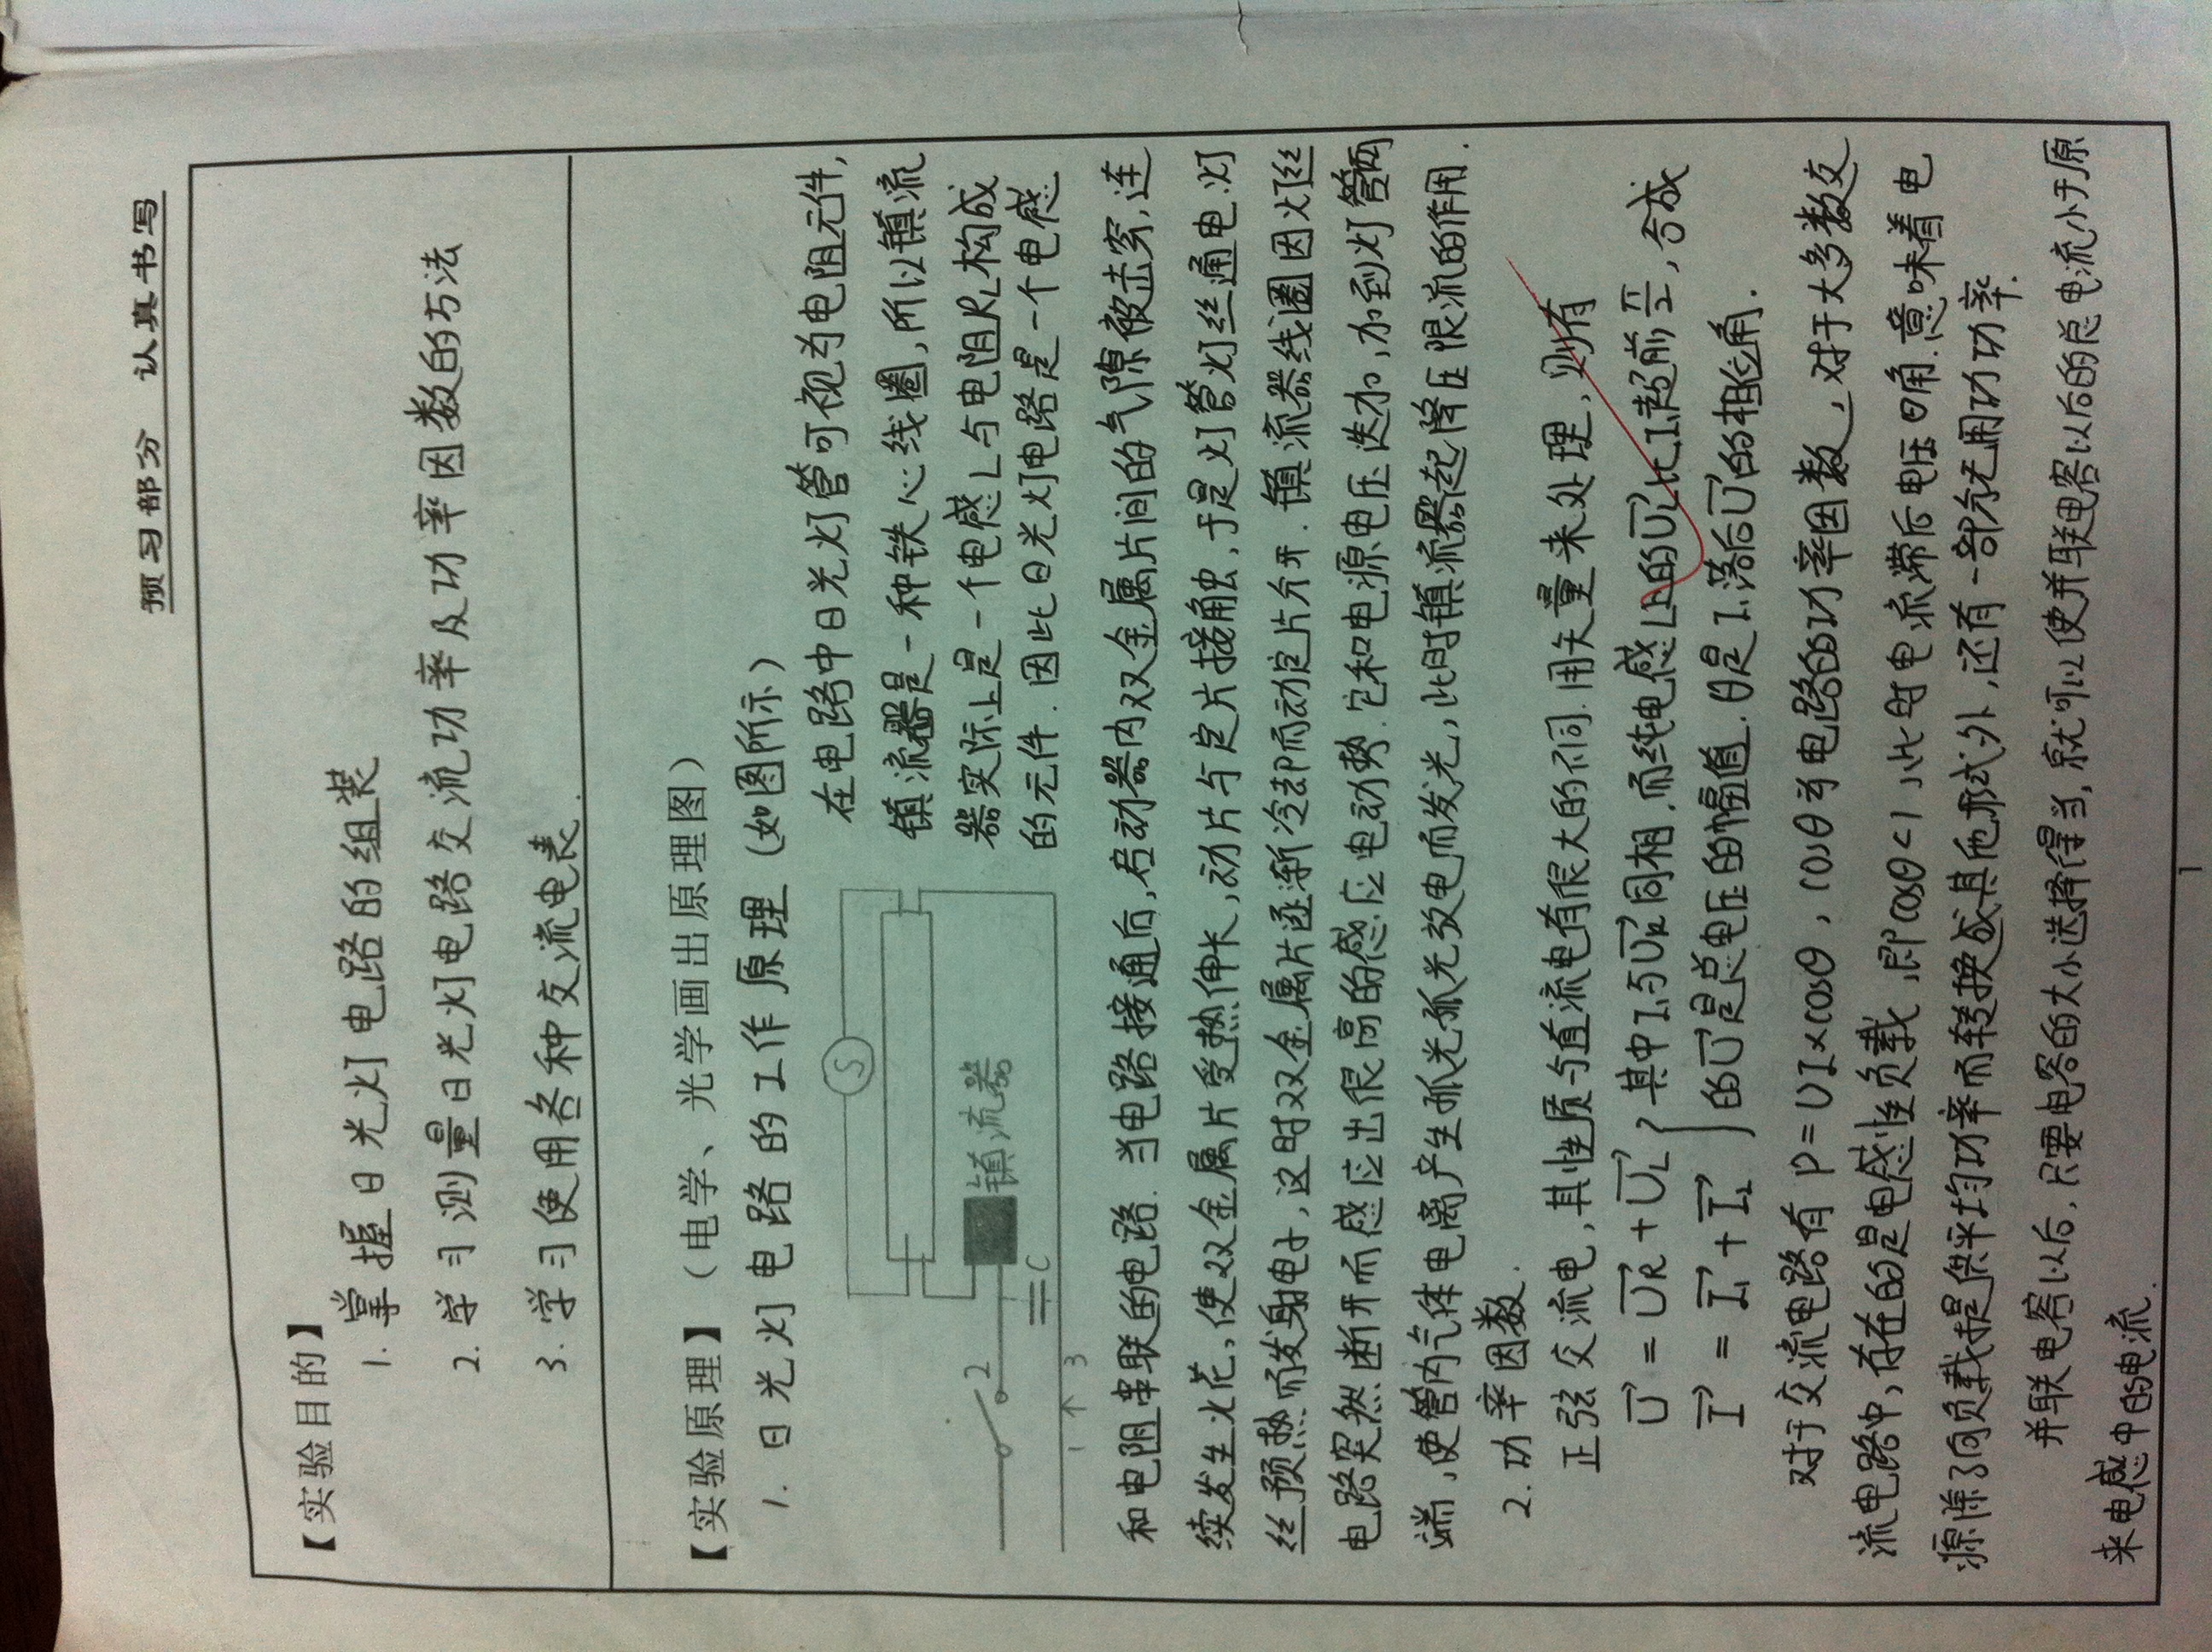 预习部分 认真书写
【实验目的】
1. 掌握日光灯电路的组装
2. 学习测量日光灯电路交流功率及功率因数的方法
3. 学习使用各种交流电表.
【实验原理】（电学、光学画出原理图）
1. 日光灯电路的工作原理（如图所示）
S
2
镇流器
C
1 ↑ 3
在电路中日光灯管可视为电阻元件,
镇流器是一种铁心线圈,所以镇流
器实际上是一个电感L与电阻RL构成
的元件. 因此日光灯电路是一个电感
和电阻串联的电路. 当电路接通后,启动器内双金属片间的气隙被击穿,连
续发生火花,使双金属片受热伸长,动片与定片接触,于是灯管灯丝通电.灯
丝预热而发射电子,这时双金属片逐渐冷却而动定片分开. 镇流器线圈因灯丝
电路突然断开而感应出很高的感应电动势.它和电源电压迭加,加到灯管两
端,使管内气体电离产生弧光弧光放电而发光,此时镇流器起降压限流的作用.
2. 功率因数.
正弦交流电,其性质与直流电有很大的不同.用矢量来处理,则有
U⃗ = U⃗R + U⃗L } 其中I₁与U⃗R同相.而纯电感L上的U⃗L比I₁超前π/2,合成
I⃗ = I⃗₁ + I⃗₂ 的U⃗是总电压的幅值.θ是I₁落后U⃗的相位角.
对于交流电路有 P=UI×cosθ, cosθ为电路的功率因数,对于大多数交
流电路中,存在的是电感性负载,即cosθ<1,此时电流滞后电压θ角.意味着电
源除了向负载提供平均功率而转换成其他形式外,还有一部分无用功功率.
并联电容以后,只要电容的大小选择得当,就可以使并联电容以后的总电流小于原
来电感中的电流.
1